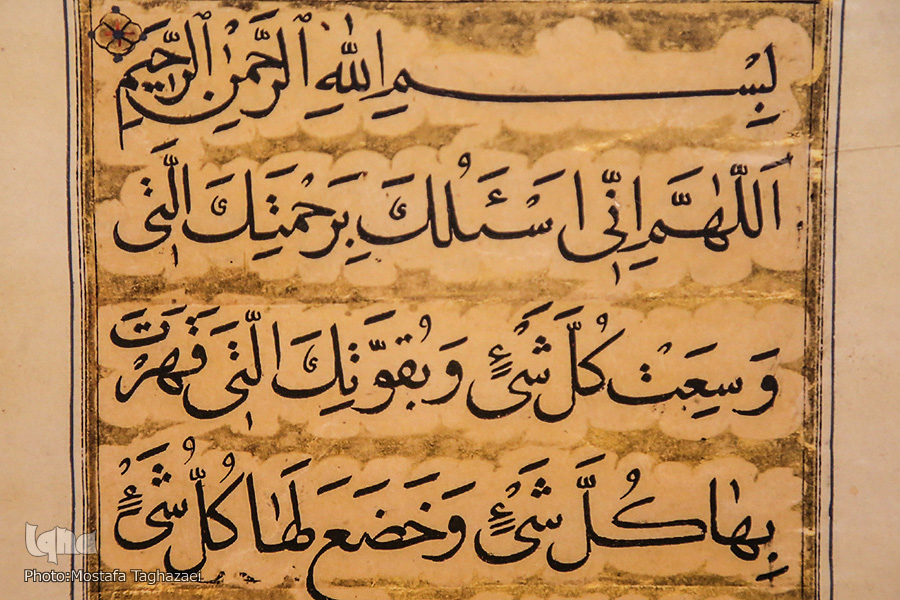 بِسْمِ اللهِ الرَّحْمٰنِ الرَّحِيمِ
اَللّٰهُمَّ اِنِّي اَسْئَلُكَ بِرَحْمَتِكَ الَّتِي
وَسِعَتْ كُلَّ شَيْءٍ وَبِقُوَّتِكَ الَّتِي قَهَرْتَ
بِهَا كُلَّ شَيْءٍ وَخَضَعَ لَهَا كُلُّ شَيْءٍ
iqna
Photo:Mostafa Taghazaei